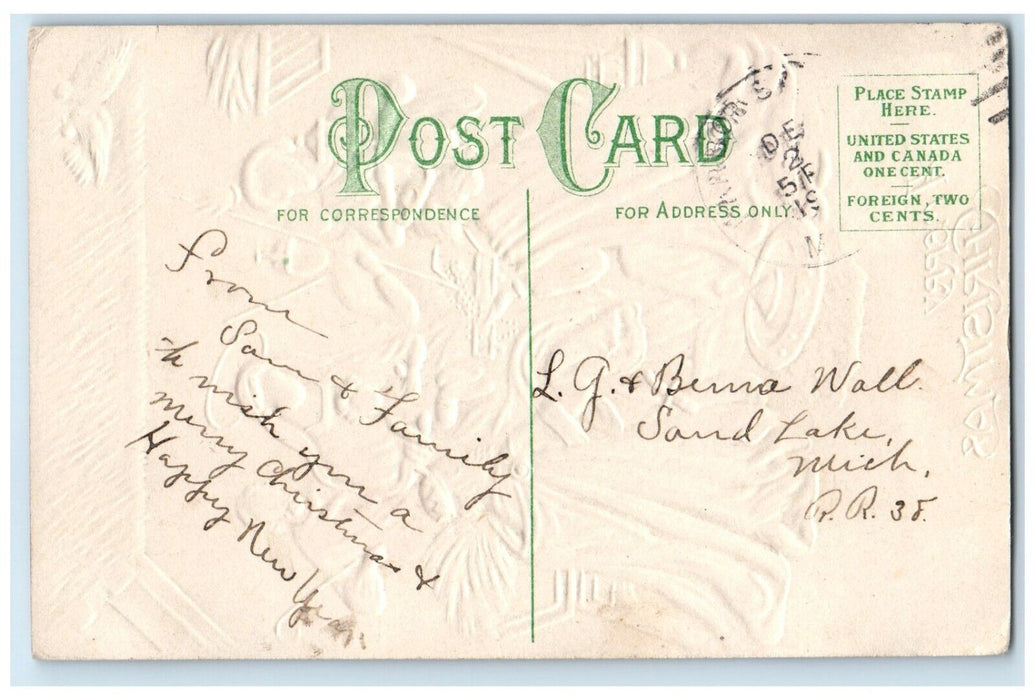 POST CARD
FOR CORRESPONDENCE
FOR ADDRESS ONLY.
PLACE STAMP
HERE.
UNITED STATES
AND CANADA
ONE CENT.
FOREIGN, TWO
CENTS.
DE
From
Sam & Family
wish you a
Merry Christmas &
Happy New Year.
L. G. & Berna Wall.
Sand Lake,
Mich,
R. R. 38.
CHRISTMAS